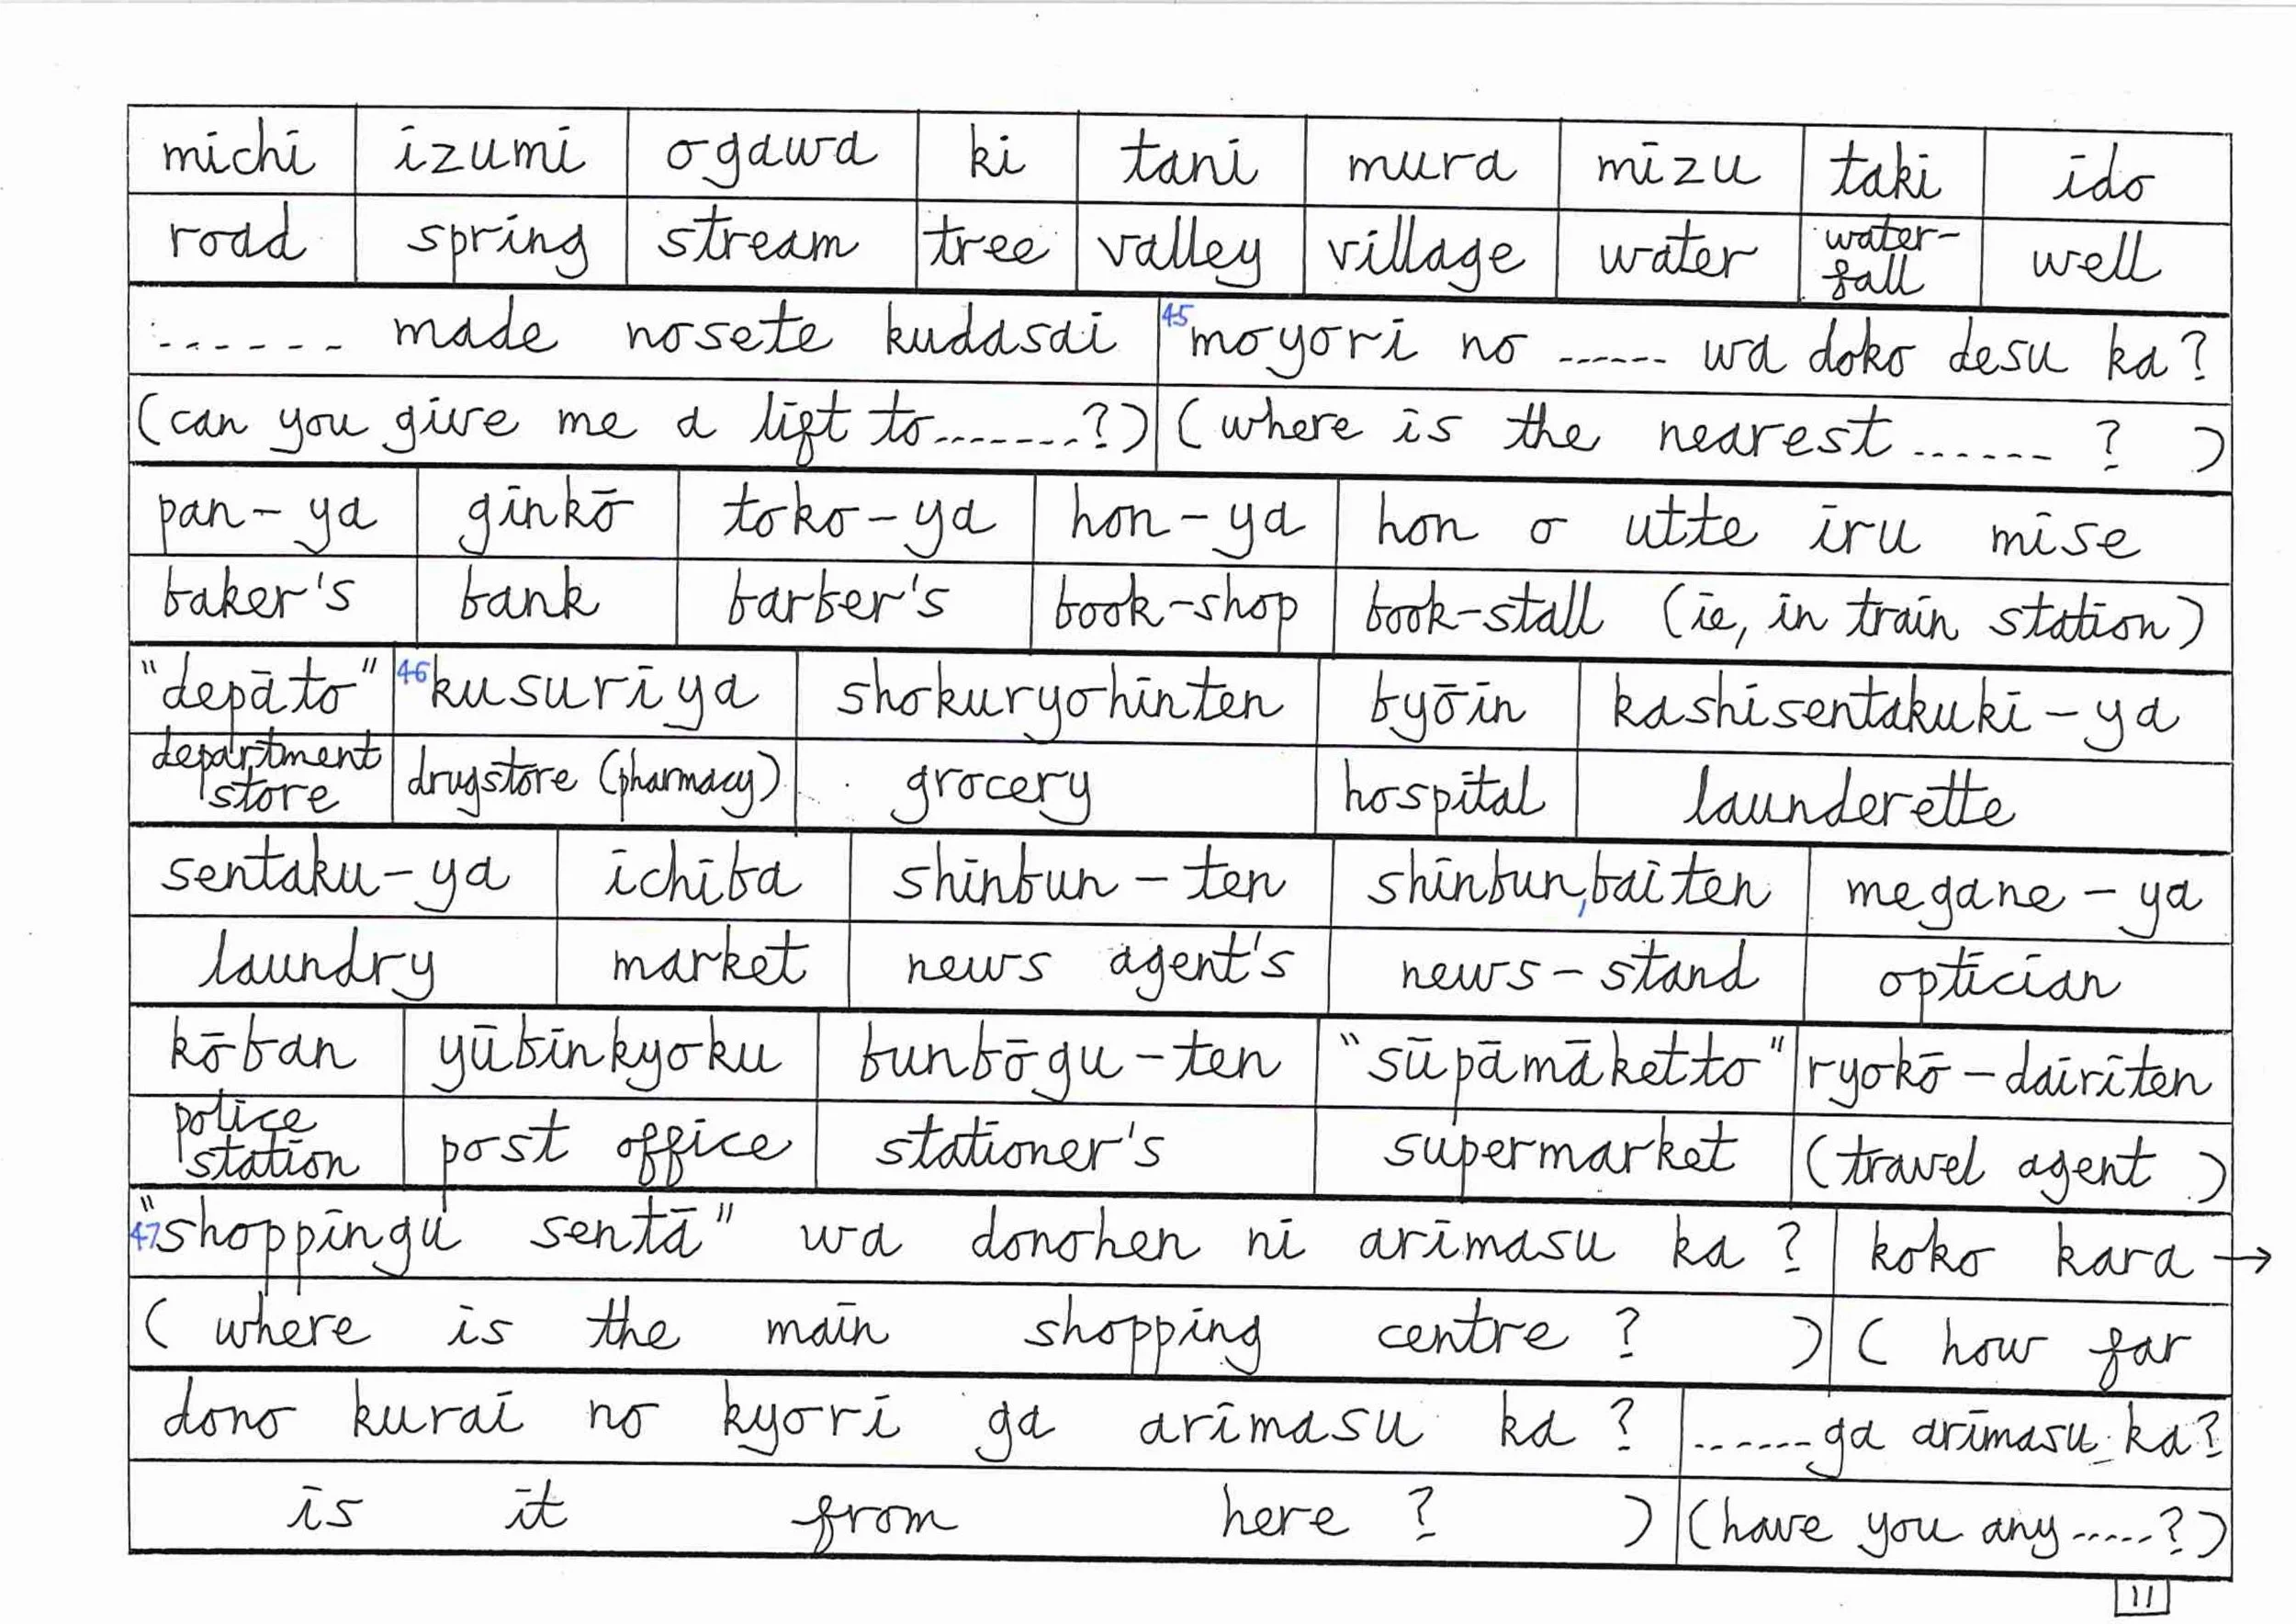 michi izumi ogawa ki tani mura mizu taki ido
road spring stream tree valley village water water-
fall well
------ made nosete kudasai 45 moyori no ------ wa doko desu ka?
(can you give me a lift to-------?) (where is the nearest ------ ? )
pan-ya ginkō toko-ya hon-ya hon o utte iru mise
baker's bank barber's book-shop book-stall (ie, in train station)
"depāto" 46 kusuriya shokuryohinten byōin kashisentakuki-ya
department
store drugstore (pharmacy) grocery hospital launderette
sentaku-ya ichiba shinbun-ten shinbun,baiten megane-ya
laundry market news agent's news-stand optician
kōban yūbinkyoku bunbōgu-ten "sūpāmāketto" ryokō-dairiten
police
station post office stationer's supermarket (travel agent )
47 "shoppingu sentā" wa donohen ni arimasu ka? koko kara →
( where is the main shopping centre? ) ( how far
dono kurai no kyori ga arimasu ka? ------ga arimasu ka?
is it from here? ) (have you any-----?)
11